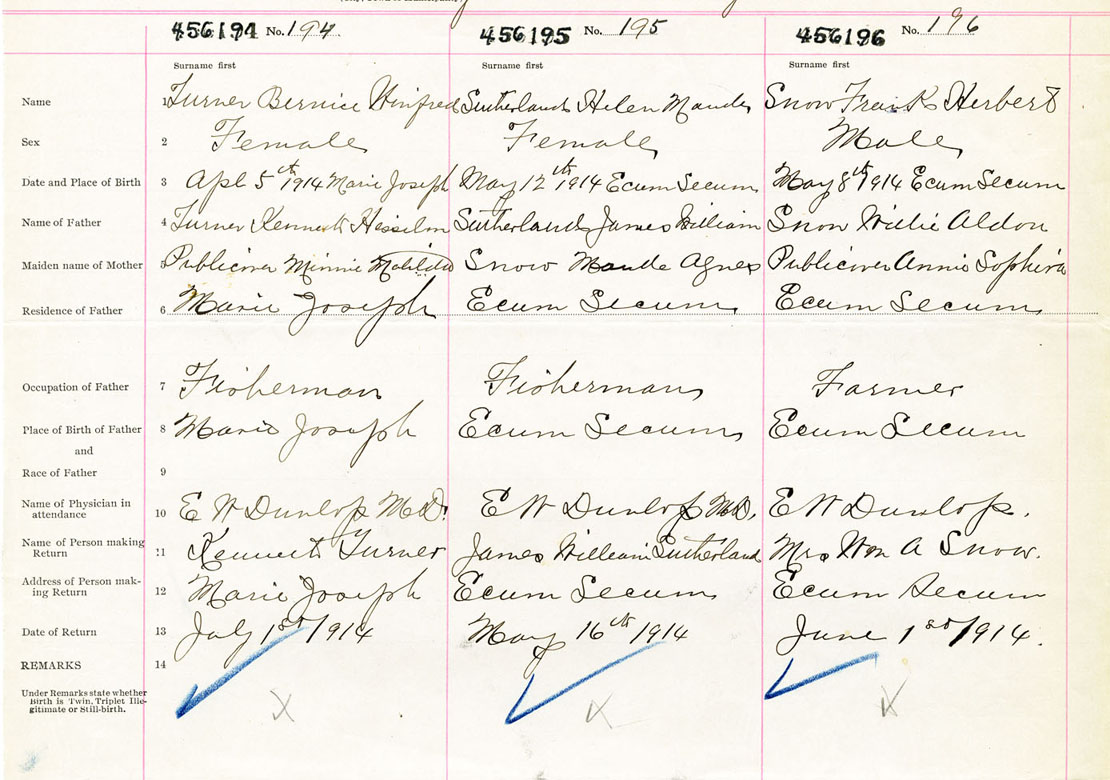 456194 No. 194 456195 No. 195 456196 No. 196
Surname first Surname first Surname first
Name 1 Turner Bernice Winifred Sutherland Helen Maude Snow Frank Herbert
Sex 2 Female Female Male
Date and Place of Birth 3 Apl 5th 1914 Marie Joseph May 12th 1914 Ecum Secum May 8th 1914 Ecum Secum
Name of Father 4 Turner Kenneth Sutherland James William Snow Willie Aldon
Maiden name of Mother 5 Publicover Minnie Matilda Snow Maude Agnes Publicover Annie Sophira
Residence of Father 6 Marie Joseph Ecum Secum Ecum Secum
Occupation of Father 7 Fisherman Fisherman Farmer
Place of Birth of Father 8 Marie Joseph Ecum Secum Ecum Secum
and
Race of Father 9
Name of Physician in
attendance 10 E W Dunlop M.D. E W Dunlop M.D. E W Dunlop.
Name of Person making
Return 11 Kenneth Turner James William Sutherland Mrs Wm A Snow.
Address of Person mak-
ing Return 12 Marie Joseph Ecum Secum Ecum Secum
Date of Return 13 July 1st 1914 May 16th 1914 June 1st 1914.
REMARKS 14
Under Remarks state whether
Birth is Twin, Triplet Ille-
gitimate or Still-birth. X X X